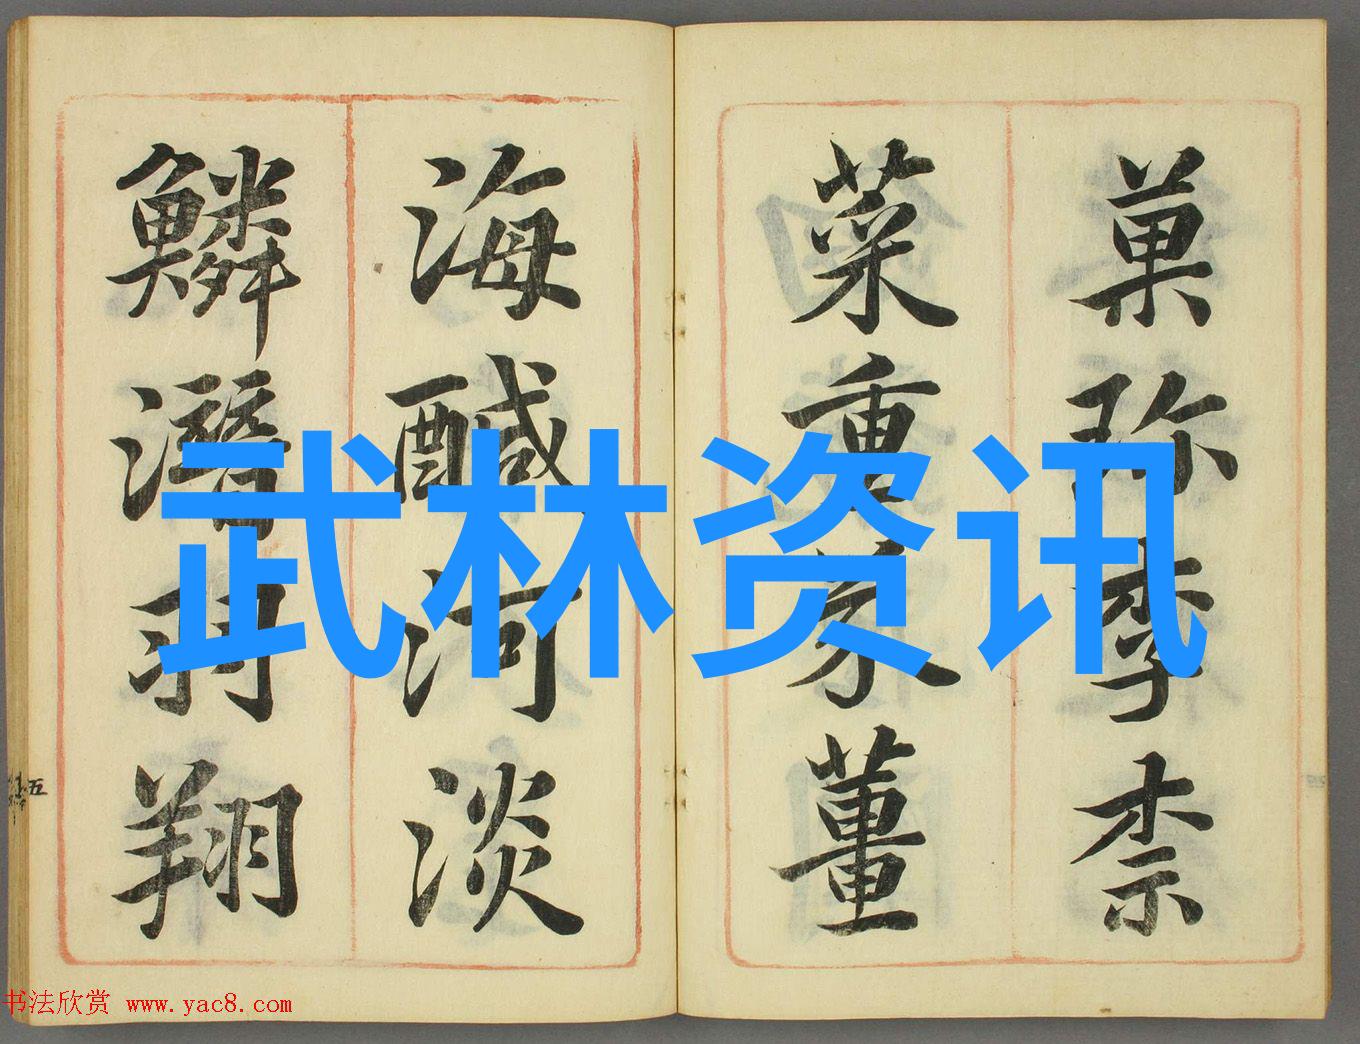 菓珎李柰
菜重芥薑
海醎河淡
鱗潛羽翔
五
武林资讯
书法欣赏 www.yac8.com